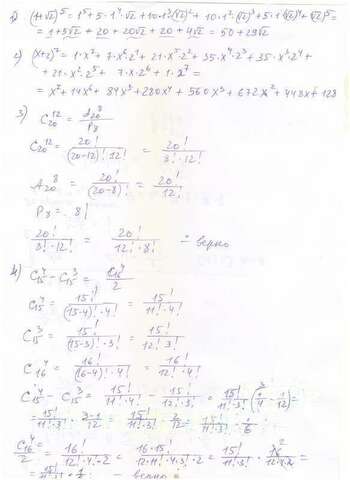 1) (1+√2)⁵ = 1⁵ + 5·1⁴·√2 + 10·1³(√2)² + 10·1²·(√2)³ + 5·1·(√2)⁴ + (√2)⁵ =
= 1 + 5√2 + 20 + 20√2 + 20 + 4√2 = 50 + 29√2
2) (x+2)⁷ = 1·x⁷ + 7·x⁶·2¹ + 21·x⁵·2² + 35·x⁴·2³ + 35·x³·2⁴ +
+ 21·x²·2⁵ + 7·x·2⁶ + 1·2⁷ =
= x⁷ + 14x⁶ + 84x⁵ + 280x⁴ + 560x³ + 672x² + 448x + 128
3) C₂₀¹² = A₂₀⁸ / P₈
C₂₀¹² = 20! / (20-12)!·12! = 20! / 8!·12!
A₂₀⁸ = 20! / (20-8)! = 20! / 12!
P₈ = 8!
20! / 8!·12! = 20! / 12!·8! - верно
4) C₁₅⁴ - C₁₅³ = C₁₆⁴ / 2
C₁₅⁴ = 15! / (15-4)!·4! = 15! / 11!·4!
C₁₅³ = 15! / (15-3)!·3! = 15! / 12!·3!
C₁₆⁴ = 16! / (16-4)!·4! = 16! / 12!·4!
C₁₅⁴ - C₁₅³ = 15! / 11!·4! - 15! / 12!·3! = 15! / 11!·3! (1/4 - 1/12) =
= 15! / 11!·3! · 3-1 / 12 = 15! / 11!·3! · 2/12 = 15! / 11!·3! · 1/6
C₁₆⁴ / 2 = 16! / 12!·4!·2 = 16·15! / 12·11!·4·3!·2 = 15! / 11!·3! · 16 / 12·4·2 =
- верно